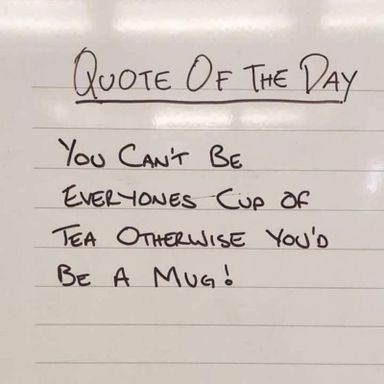 Quote Of The Day
You Can't Be
Everyones Cup of
Tea Otherwise You'd
Be A Mug!